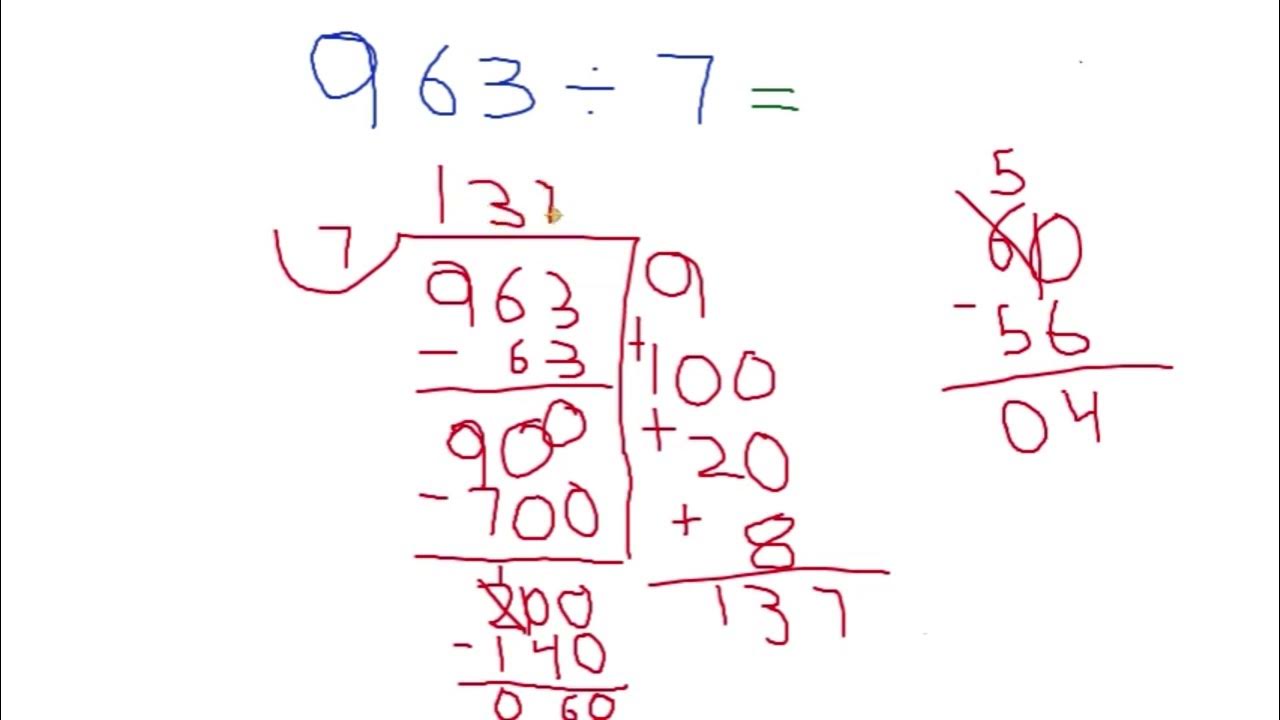 963 ÷ 7 =
137
7 963 9
- 63 + 100
900 + 20
- 700 + 8
200 137
1
- 140
0 60
5
60
- 56
04